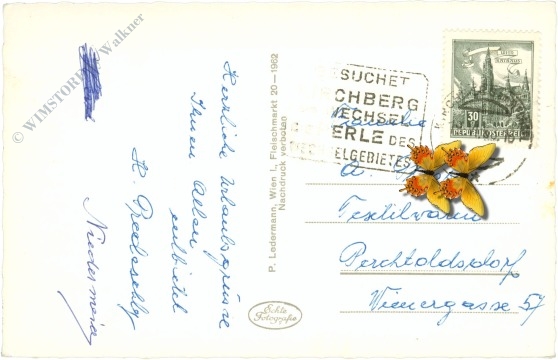 © WIMSTORFER Walkner
Herzliche Urlaubsgrüsse
Ihnen Allen
entbietet
K.
Niedermeier
P. Ledermann, Wien I., Fleischmarkt 20 — 1962
Nachdruck verboten
Echte
Fotografie
SUCHET
CHBERG
WECHSEL
ERLE DES
ELGEBIETES
WIEN
RATHAUS
30
REPUBLIK ÖSTERREICH
Familie
A.
Textilwaren
Perchtoldsdorf
Wienergasse 57